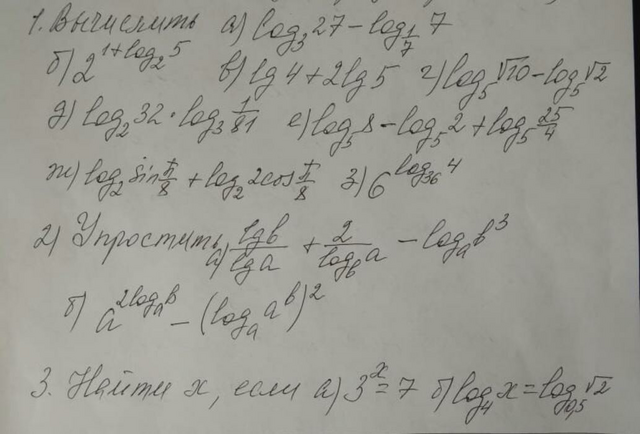 1. Вычислить а) log₃27 − log_{1/7} 7
б) 2^{1+log₂5} в) lg 4 + 2lg 5 г) log₅√10 − log₅√2
д) log₂32 · log₃ 1/81 е) log₅8 − log₅2 + log₅ 25/4
ж) log₂ sin π/8 + log₂ 2cos π/8 з) 6^{log₃₆4}
2) Упростить а) lg b/lg a + 2/log_b a − log_a b³
б) a^{2log_a b} − (log_a a^b)²
3. Найти x, если а) 3^x = 7 б) log₄x = log_{0,5}√2